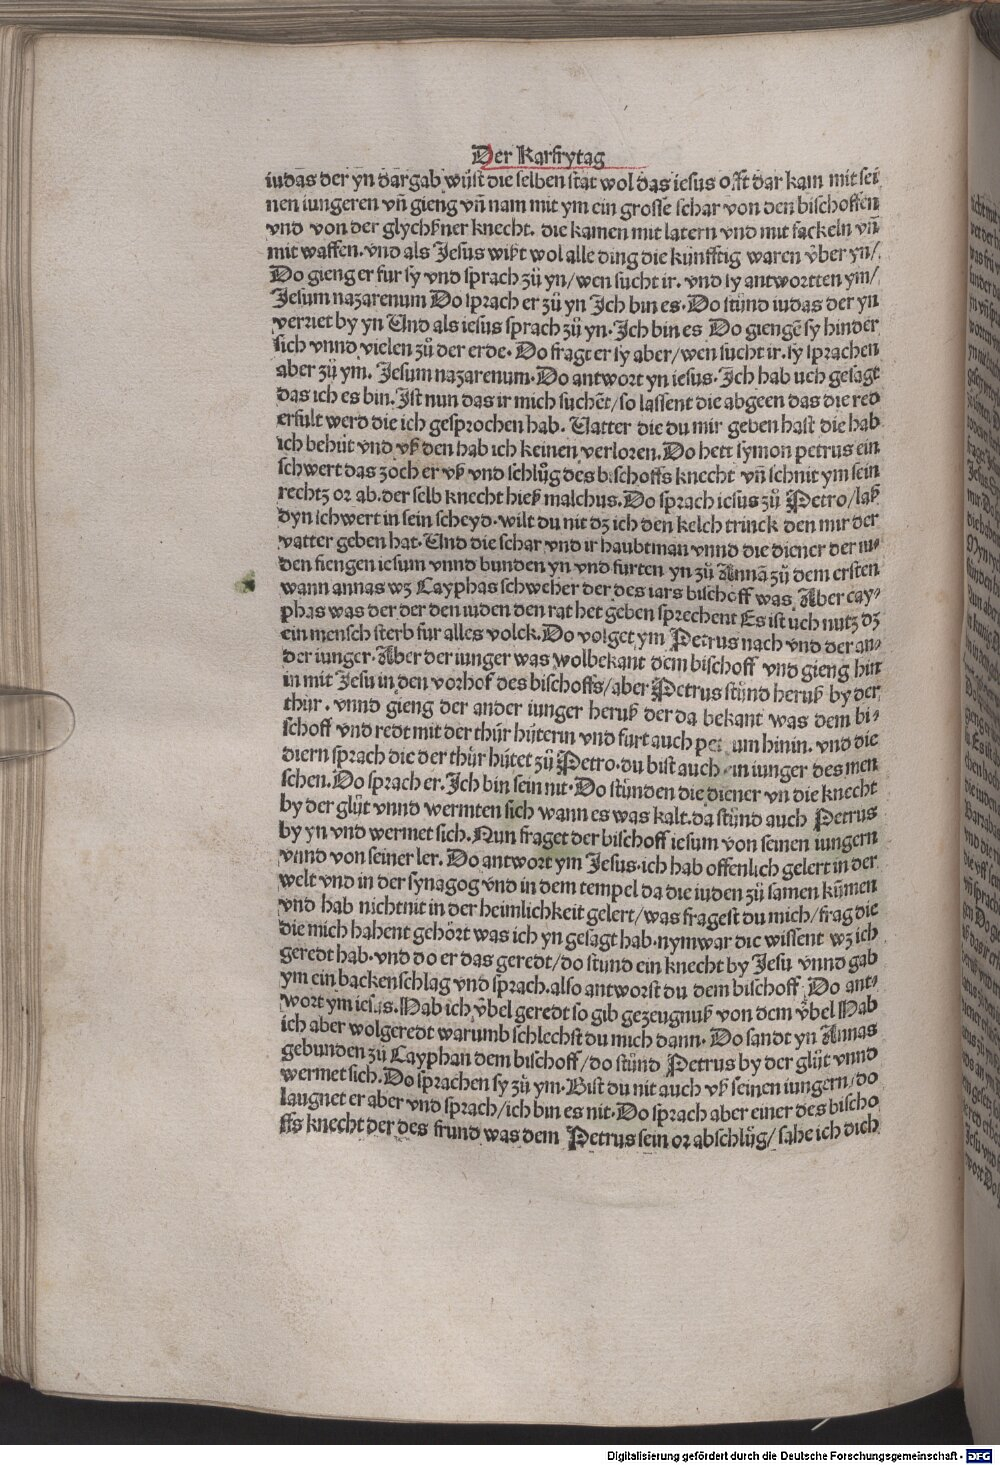 Der Karfrytag
iudas der yn dargab wüst die selben stat wol das iesus offt dar kam mit sei
nen iungeren vn̄ gieng vn̄ nam mit ym ein grosse schar von den bischoffen
vnd von der glychßner knecht. die kamen mit latern vnd mit fackeln vn̄
mit waffen. vnd als Jesus wißt wol alle ding die künfftig waren v̊ber yn/
Do gieng er fur sy vnd sprach zů yn/wen sucht ir. vnd sy antwortten ym/
Jesum nazarenum Do sprach er zů yn Ich bin es. Do stůnd iudas der yn
verriet by yn Und als iesus sprach zů yn. Ich bin es Do giengē sy hinder
sich vnnd vielen zů der erde. Do fragt er sy aber/wen sucht ir. sy sprachen
aber zů ym. Jesum nazarenum. Do antwort yn iesus. Ich hab uch gesagt
das ich es bin. Ist nun das ir mich suchēt/so lassent die abgeen das die red
erfult werd die ich gesprochen hab. Vatter die du mir geben hast die hab
ich behüt vnd vß den hab ich keinen verloren. Do hett symon petrus ein
schwert das zoch er vß vnd schlůg des bischoffs knecht vn̄ schnit ym sein
rechtz or ab. der selb knecht hieß malchus. Do sprach iesus zů Petro/laß
dyn schwert in sein scheyd. wilt du nit dz ich den kelch trinck den mir der
vatter geben hat. Und die schar vnd ir haubtman vnnd die diener der iu⸗
den fiengen iesum vnnd bunden yn vnd furten yn zů Annā zů dem ersten
wann annas wz Cayphas schweher der des iars bischoff was. Aber cay⸗
phas was der der den iuden den rat het geben sprechent Es ist uch nutz dz
ein mensch sterb fur alles volck. Do volget ym Petrus nach vnd der an⸗
der iunger. Aber der iunger was wolbekant dem bischoff vnd gieng hin
in mit Jesu in den vorhof des bischoffs/aber Petrus stůnd heruß by der
thür. vnnd gieng der ander iunger heruß der da bekant was dem bi⸗
schoff vnd redt mit der thür hüterin vnd furt auch pet um hinin. vnd die
diern sprach die der thür hütet zů Petro. du bist auch ein iunger des men
schen. Do sprach er. Ich bin sein nit. Do stůnden die diener vn die knecht
by der glůt vnnd wermten sich wann es was kalt. da stůnd auch Petrus
by yn vnd wermet sich. Nun fraget der bischoff iesum von seinen iungern
vnnd von seiner ler. Do antwort ym Jesus. ich hab offenlich gelert in der
welt vnd in der synagog vnd in dem tempel da die iuden zů samen kům̄en
vnd hab nichtnit in der heimlichkeit gelert/was fragest du mich/frag die
die mich habent gehört was ich yn gesagt hab. nymwar die wissent wz ich
geredt hab. vnd do er das geredt/do stund ein knecht by Jesu vnnd gab
ym ein backenschlag vnd sprach. also antworst du dem bischoff Do ant⸗
wort ym iesus. Hab ich v̊bel geredt so gib gezeugnuß von dem v̊bel Hab
ich aber wolgeredt warumb schlechst du mich dann. Do sandt yn Annas
gebunden zů Cayphan dem bischoff/do stůnd Petrus by der glůt vnnd
wermet sich. Do sprachen sy zů ym. Bist du nit auch vß seinen iungern/do
laugnet er aber vnd sprach/ich bin es nit. Do sprach aber einer des bischo
ffs knecht der des frund was dem Petrus sein or abschlůg/sahe ich dich
Digitalisierung gefördert durch die Deutsche Forschungsgemeinschaft - DFG